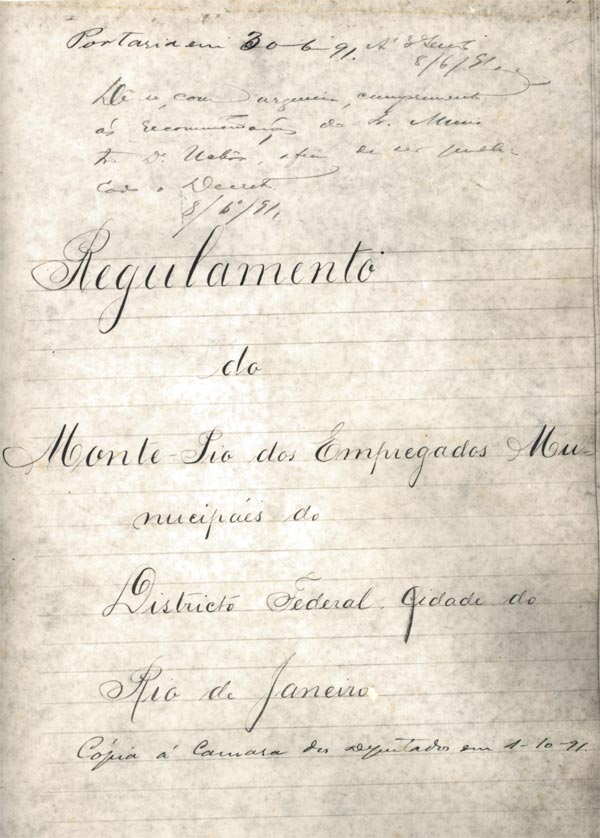 Portaria em 30-6-91.
8/6/91.
Dê-se, com urgencia, cumprimento
ás recommendações do Sr. Minis
tro
cado o Decreto.
8/6/91.
Regulamento
do
Monte-Pio dos Empregados Mu-
nucipáes do
Districto Federal, Cidade do
Rio de Janeiro
Cópia á Camara dos Deputados em 1-10-91.